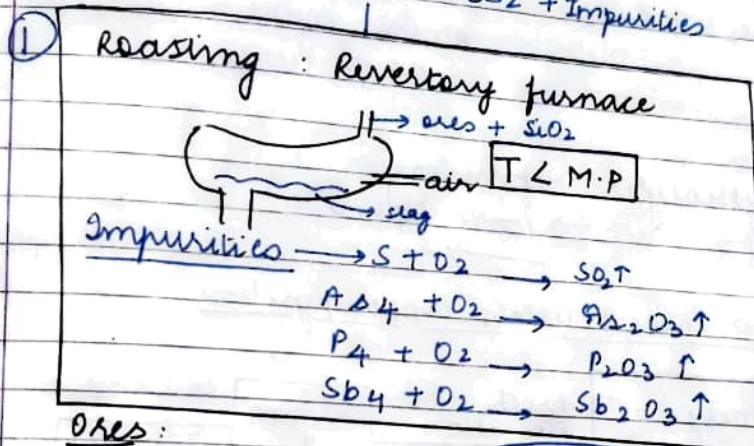 + Impurities
1 Roasting : Revertory furnace
→ ores + SiO2
air T < M.P
→ slag
Impurities → S + O2 → SO2↑
As4 + O2 → As2O3↑
P4 + O2 → P2O3↑
Sb4 + O2 → Sb2O3↑
Ores :